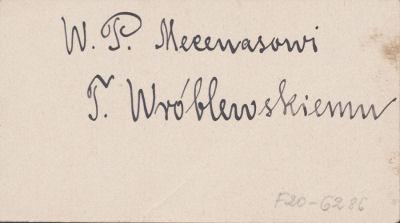 W. P. Mecenasowi
T. Wróblewskiemu
F20-6286